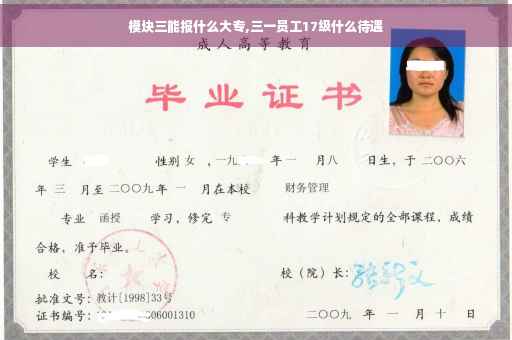 模块三能报什么大专,三一员工17级什么待遇
成人高等教育
毕业证书
学生 性别 女 ,一九 年一 月八 日生,于二〇〇六
年 三 月至二〇〇九年 一 月在本校 财务管理
专业 函授 学习,修完 专 科教学计划规定的全部课程,成绩
合格,准予毕业。
校 名: 校(院)长:
批准文号:教计[1998]33号
证书编号: 06001310 二〇〇九 年 一 月 十 日